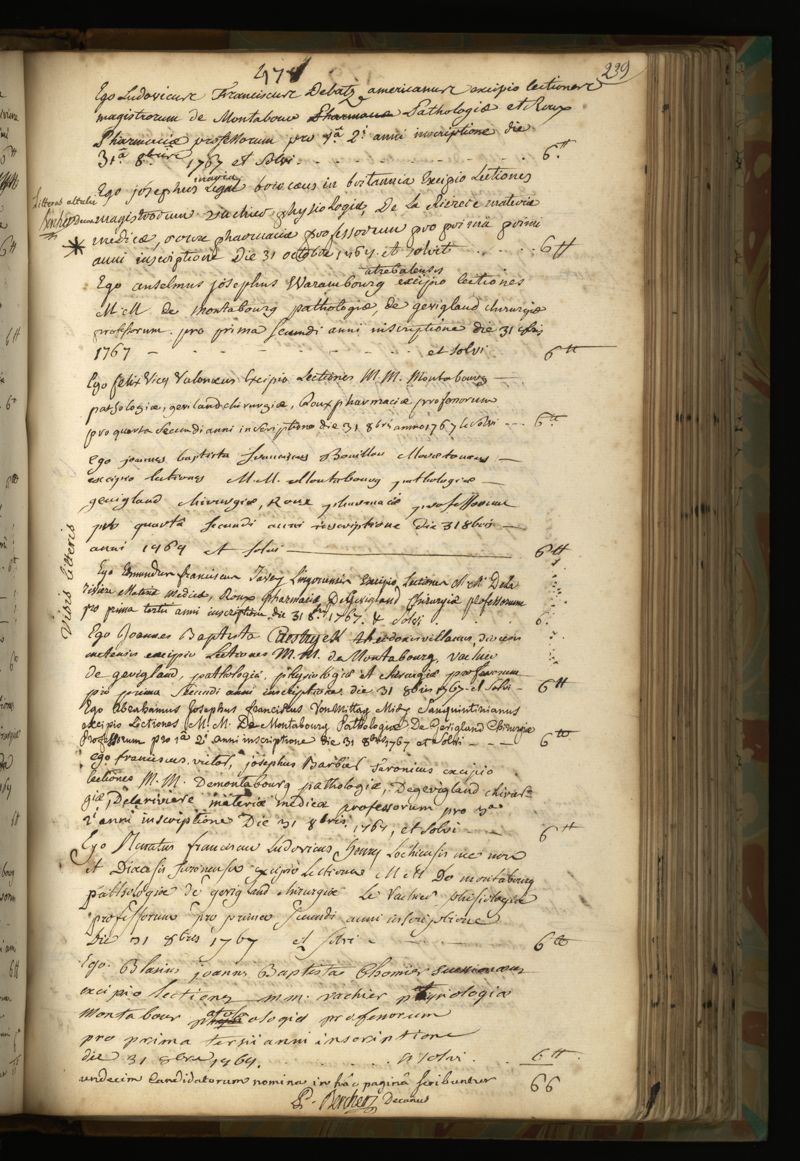 239
Ego Ludovicus Franciscus Debatz americanus excipio lectiones
magistrorum de Montabour Pharmaciæ Pathologiæ et Roux
Pharmaciæ professorum pro 1ª 2i anni inscriptione die
31ª 8bris 1767 et solvi. 6tt
Ego josephus Legal in britannia Excipio Lectiones
Litteras attulit
Bercher Decanus
magistrorum vachier physiologiæ, De La Riviere materiæ
medicæ, roux pharmaciæ professorum pro primâ primi
anni inscriptione Die 31 octobris 1767. et solvi 6tt
Ego anselmus josephus Warambourg atrebatensis excipio lectiones
M.M. de montabourg pathologiæ, de gevigland chirurgiæ
professorum. pro prima secundi anni inscriptione die 31 8bris
1767 et solvi 6tt
Ego felix Vicq Valonæus Excipio Lectiones M.M. Montabourg
pathologiæ, gevigland chirurgiæ, Roux pharmaciæ professorum
pro quarta Secundi anni inscriptione die 31 8bris anno 1767 et Solvi 6tt
Ego joannes baptista franciscus Bouillon
excipio lectiones M.M. Montabourg pathologiæ
gevigland chirurgiæ, Roux pharmaciæ professorum
pro quartâ secundi anni inscriptione die 31 8bris
anni 1767 et solvi 6tt
Visis litteris
Ego Edmundus franciscus Lingonensis Excipio Lectiones M.M. De La
Riviere Materiæ Medicæ, Roux pharmaciæ De Gevigland Chirurgiæ professorum
pro prima tertii anni inscriptione die 31 8bris 1767. & Solvi 6
Ego Joannes Baptista theodonisvillanus, diœcesis
metensis excipio Lectiones M.M. de Montabourg, vachier
de gevigland, pathologiæ, physiologiæ et chirurgiæ professorum
pro prima secundi anni inscriptione die 31 8bris 1767 et Solvi 6tt
Ego Abrahamus Josephus franciscus Midy Sanquintinianus
excipio Lectiones M.M. De Montabourg Pathologiæ De Gevigland Chirurgiæ
Professorum pro 1ª 2i anni inscriptione die 31 8bris 1767 et Solvi 6tt
Ego franciscus, victor, josephus Barbier excipio
lectiones M.M. Demontabourg pathologiæ, Degevigland chirur-
giæ, Delariviere materiæ medicæ professorum pro 3ª
2i anni inscriptione Die 31 8bris 1767, et Solvi 6tt
Ego franciscus Ludovicus Henry
et Diœcesis excipio Lectiones M.M. De montabourg
pathologiæ de gevigland chirurgiæ Le Vachier phisiologiæ
professorum pro prima secundi anni inscriptione
Die 31 8bris 1767 et solvi 6tt
Ego Blasius joannes Baptista Chomier Suessionæus
excipio lectiones m.m. vachier physiologiæ
Montabour pathologiæ professorum
pro prima tersii anni inscriptione
die 31 8bre 1767. et solvi 6tt
undecim Candidatorum nomina in hâc paginâ scribuntur 66
P. Bercher Decanus